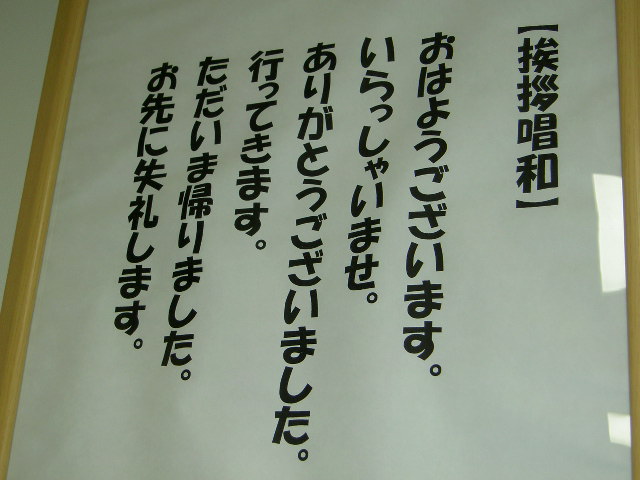 【挨拶唱和】
おはようございます。
いらっしゃいませ。
ありがとうございました。
行ってきます。
ただいま帰りました。
お先に失礼します。